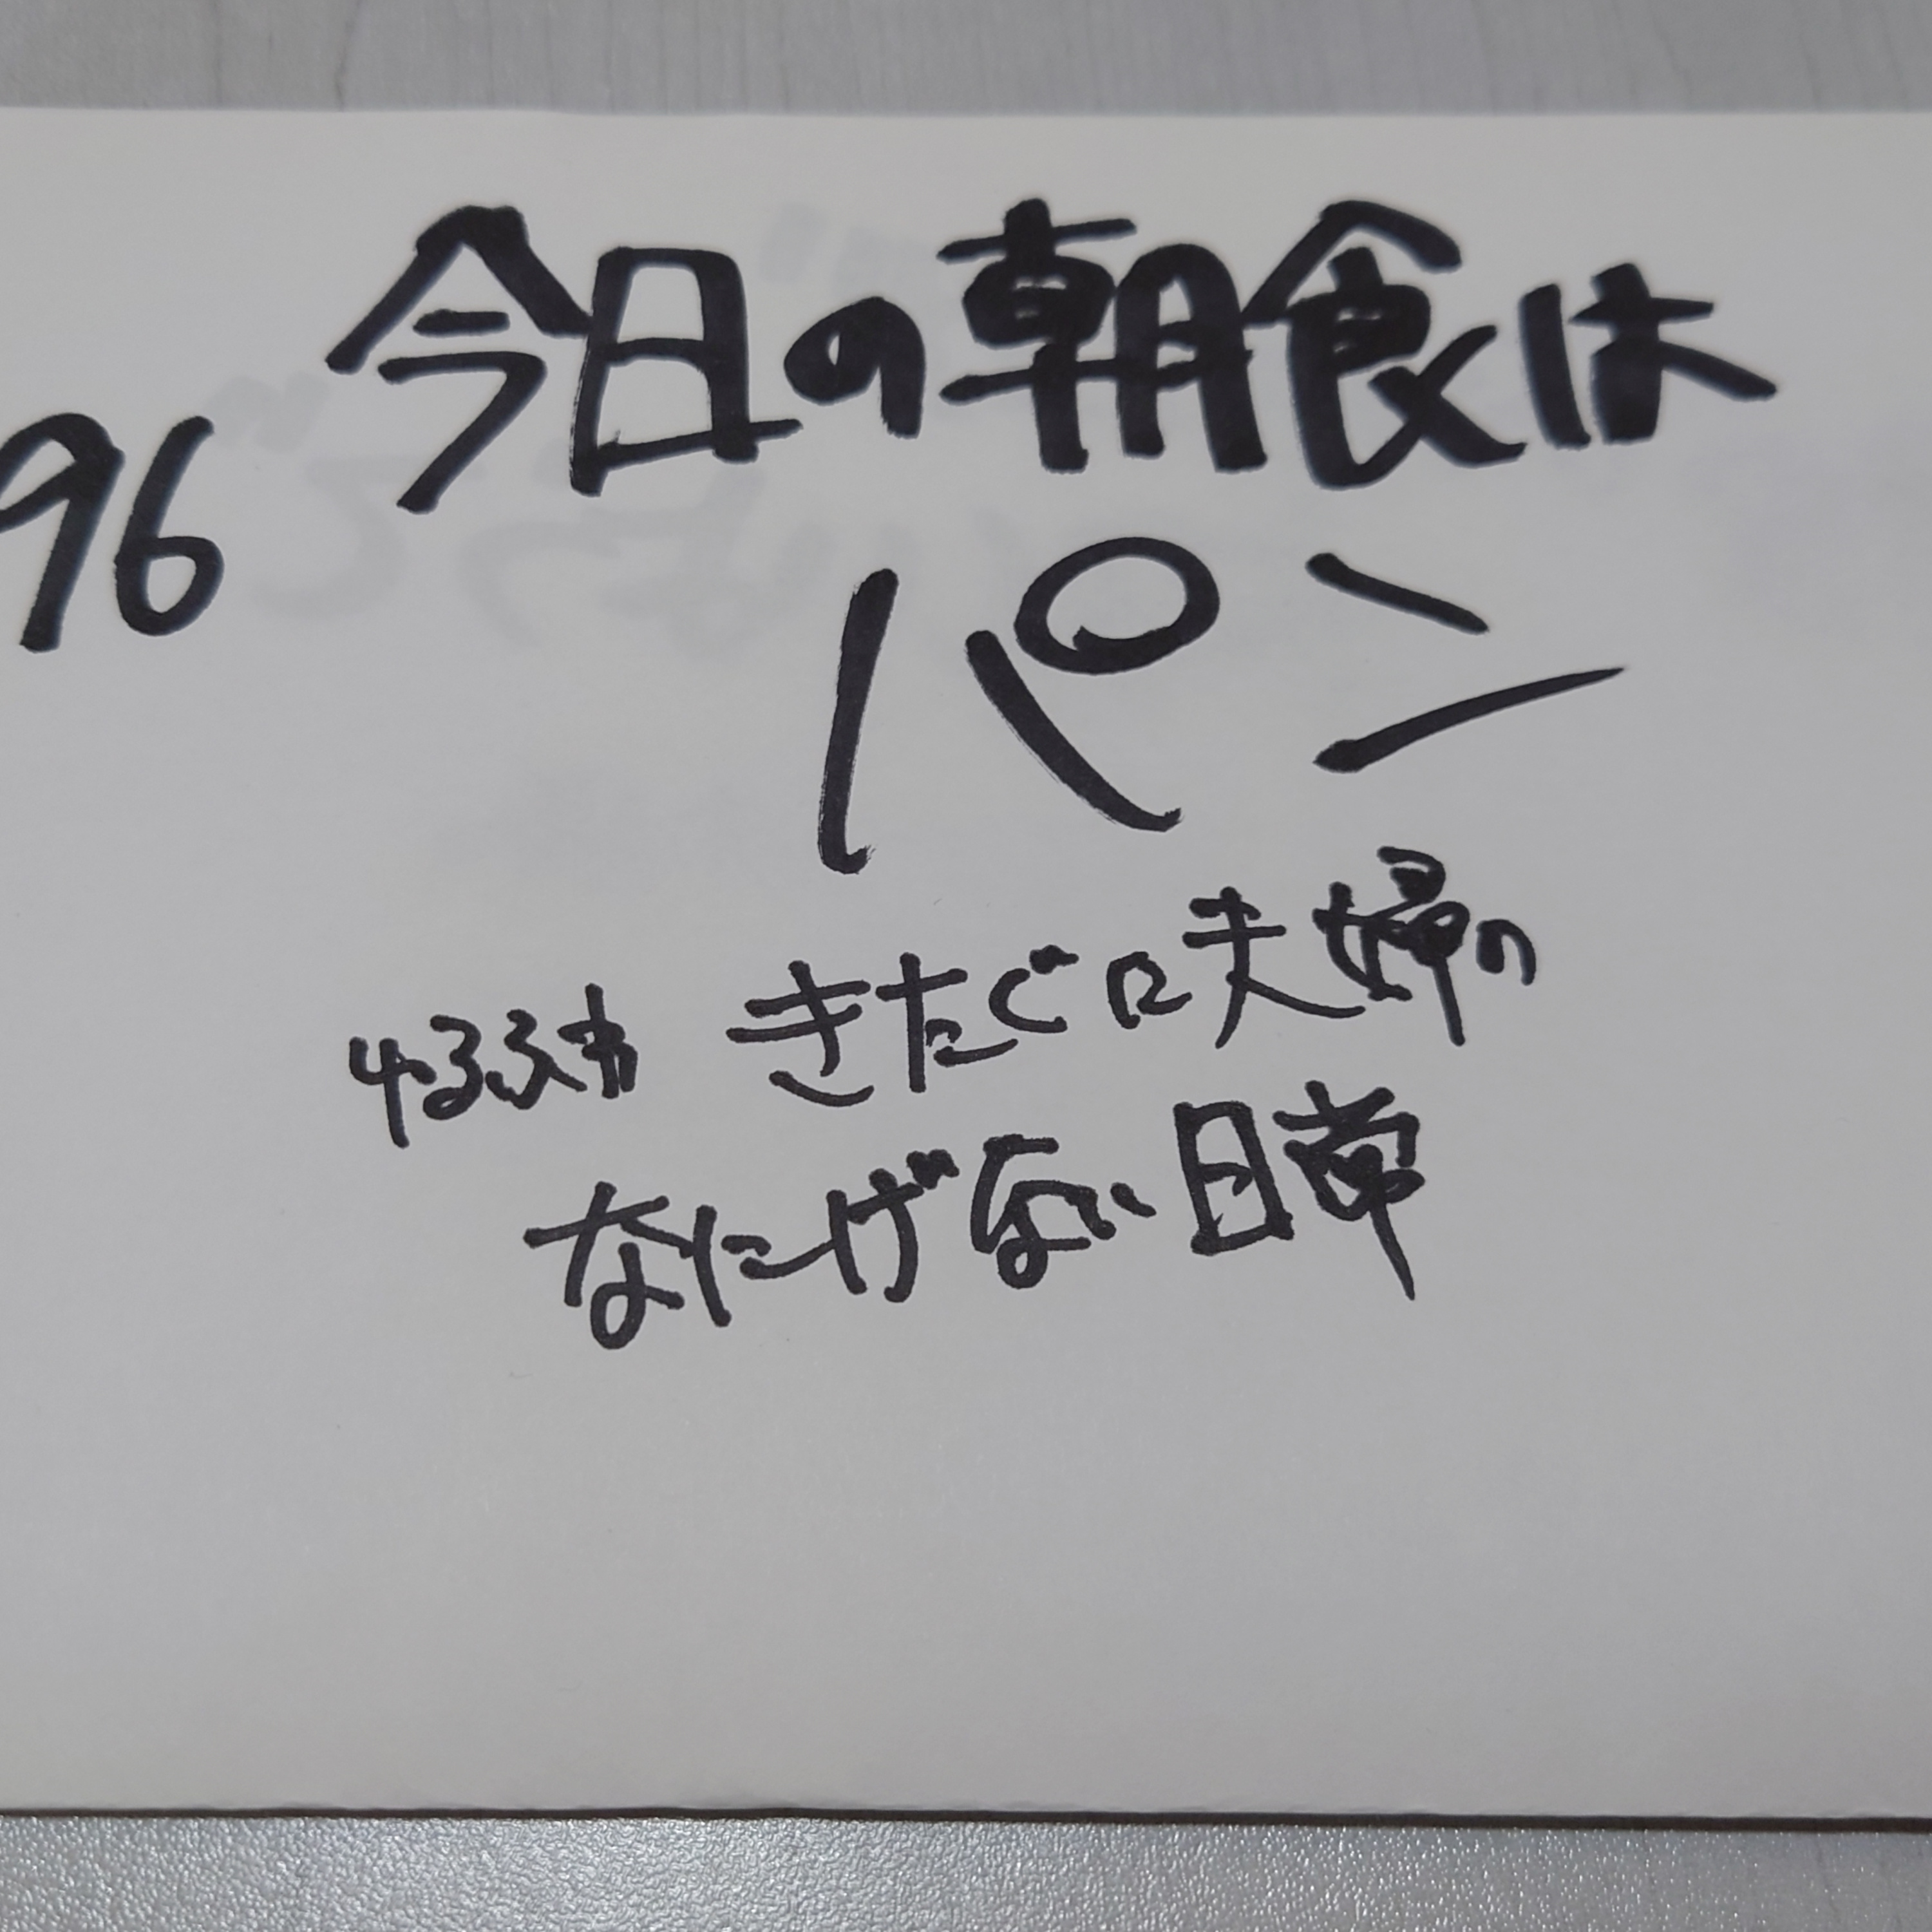 今日の朝食は
96
パン
ゆるふわ きたぐに夫婦の
なにげない日常